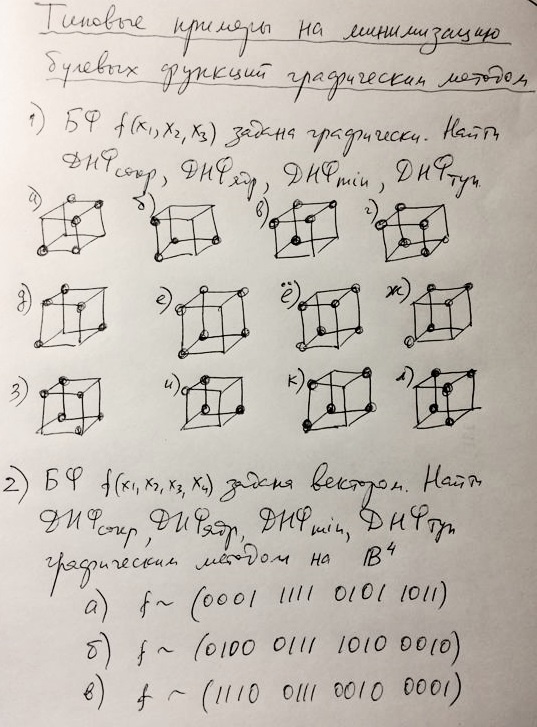 Типовые примеры на минимизацию
булевых функций графическим методом
1) БФ f(x₁, x₂, x₃) задана графически. Найти
ДНФсокр, ДНФядр, ДНФmin, ДНФтуп.
а) б) в) г)
д) е) ё) ж)
з) и) к) л)
2) БФ f(x₁, x₂, x₃, x₄) задана вектором. Найти
ДНФсокр, ДНФядр, ДНФmin, ДНФтуп
графическим методом на B⁴
а) f ~ (0001 1111 0101 1011)
б) f ~ (0100 0111 1010 0010)
в) f ~ (1110 0111 0010 0001)